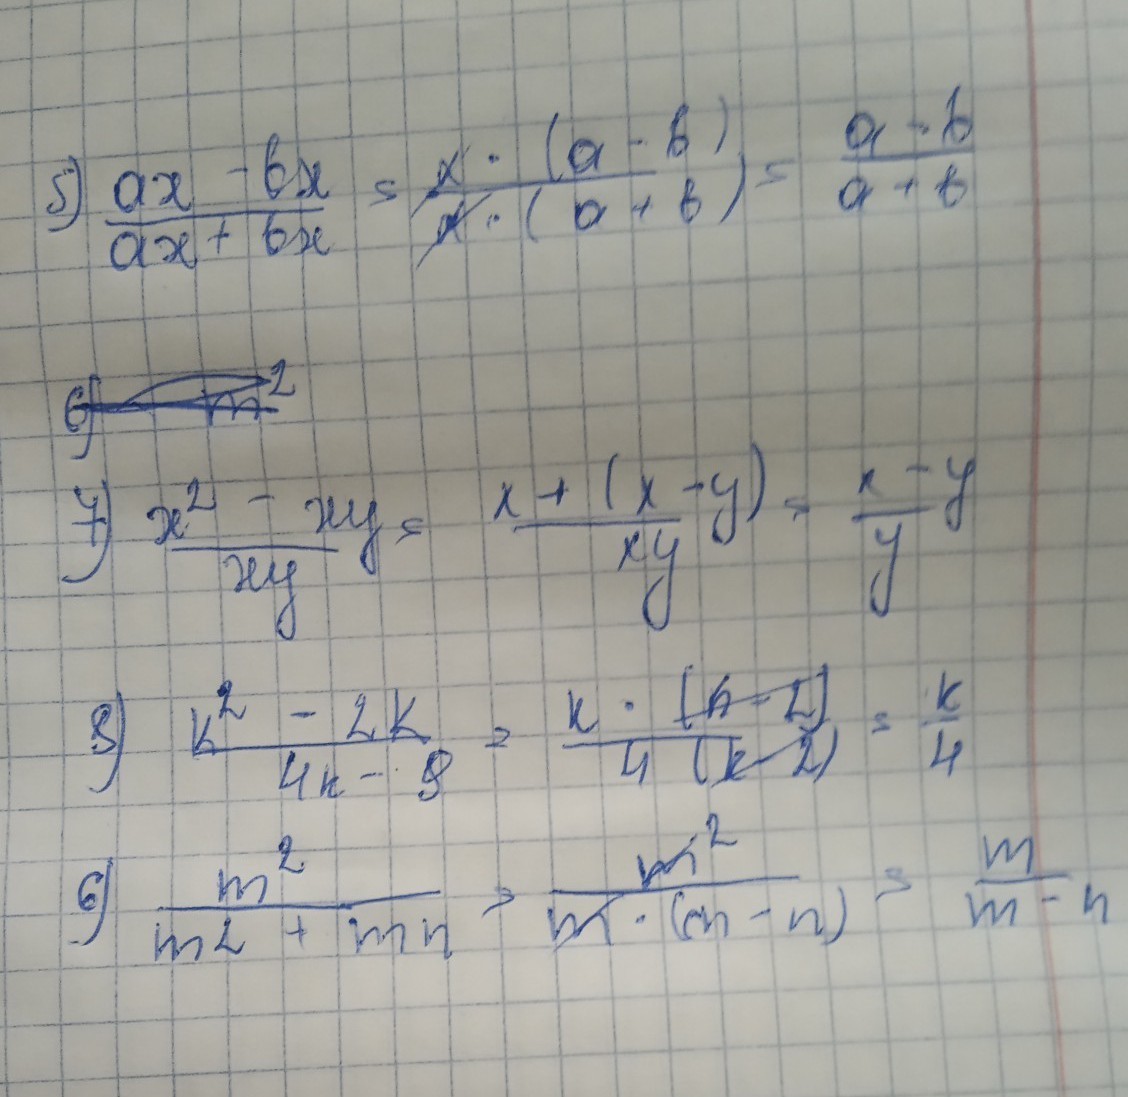 5) (ax - bx)/(ax + bx) = (x · (a - b))/(x · (a + b)) = (a - b)/(a + b)
6) m²
7) (x² - xy)/(xy) = (x + (x - y))/(xy) = (x - y)/y
8) (k² - 2k)/(4k - 8) = (k · (k - 2))/(4 (k - 2)) = k/4
6) m²/(m2 + mn) = m²/(m · (m - n)) = m/(m - n)